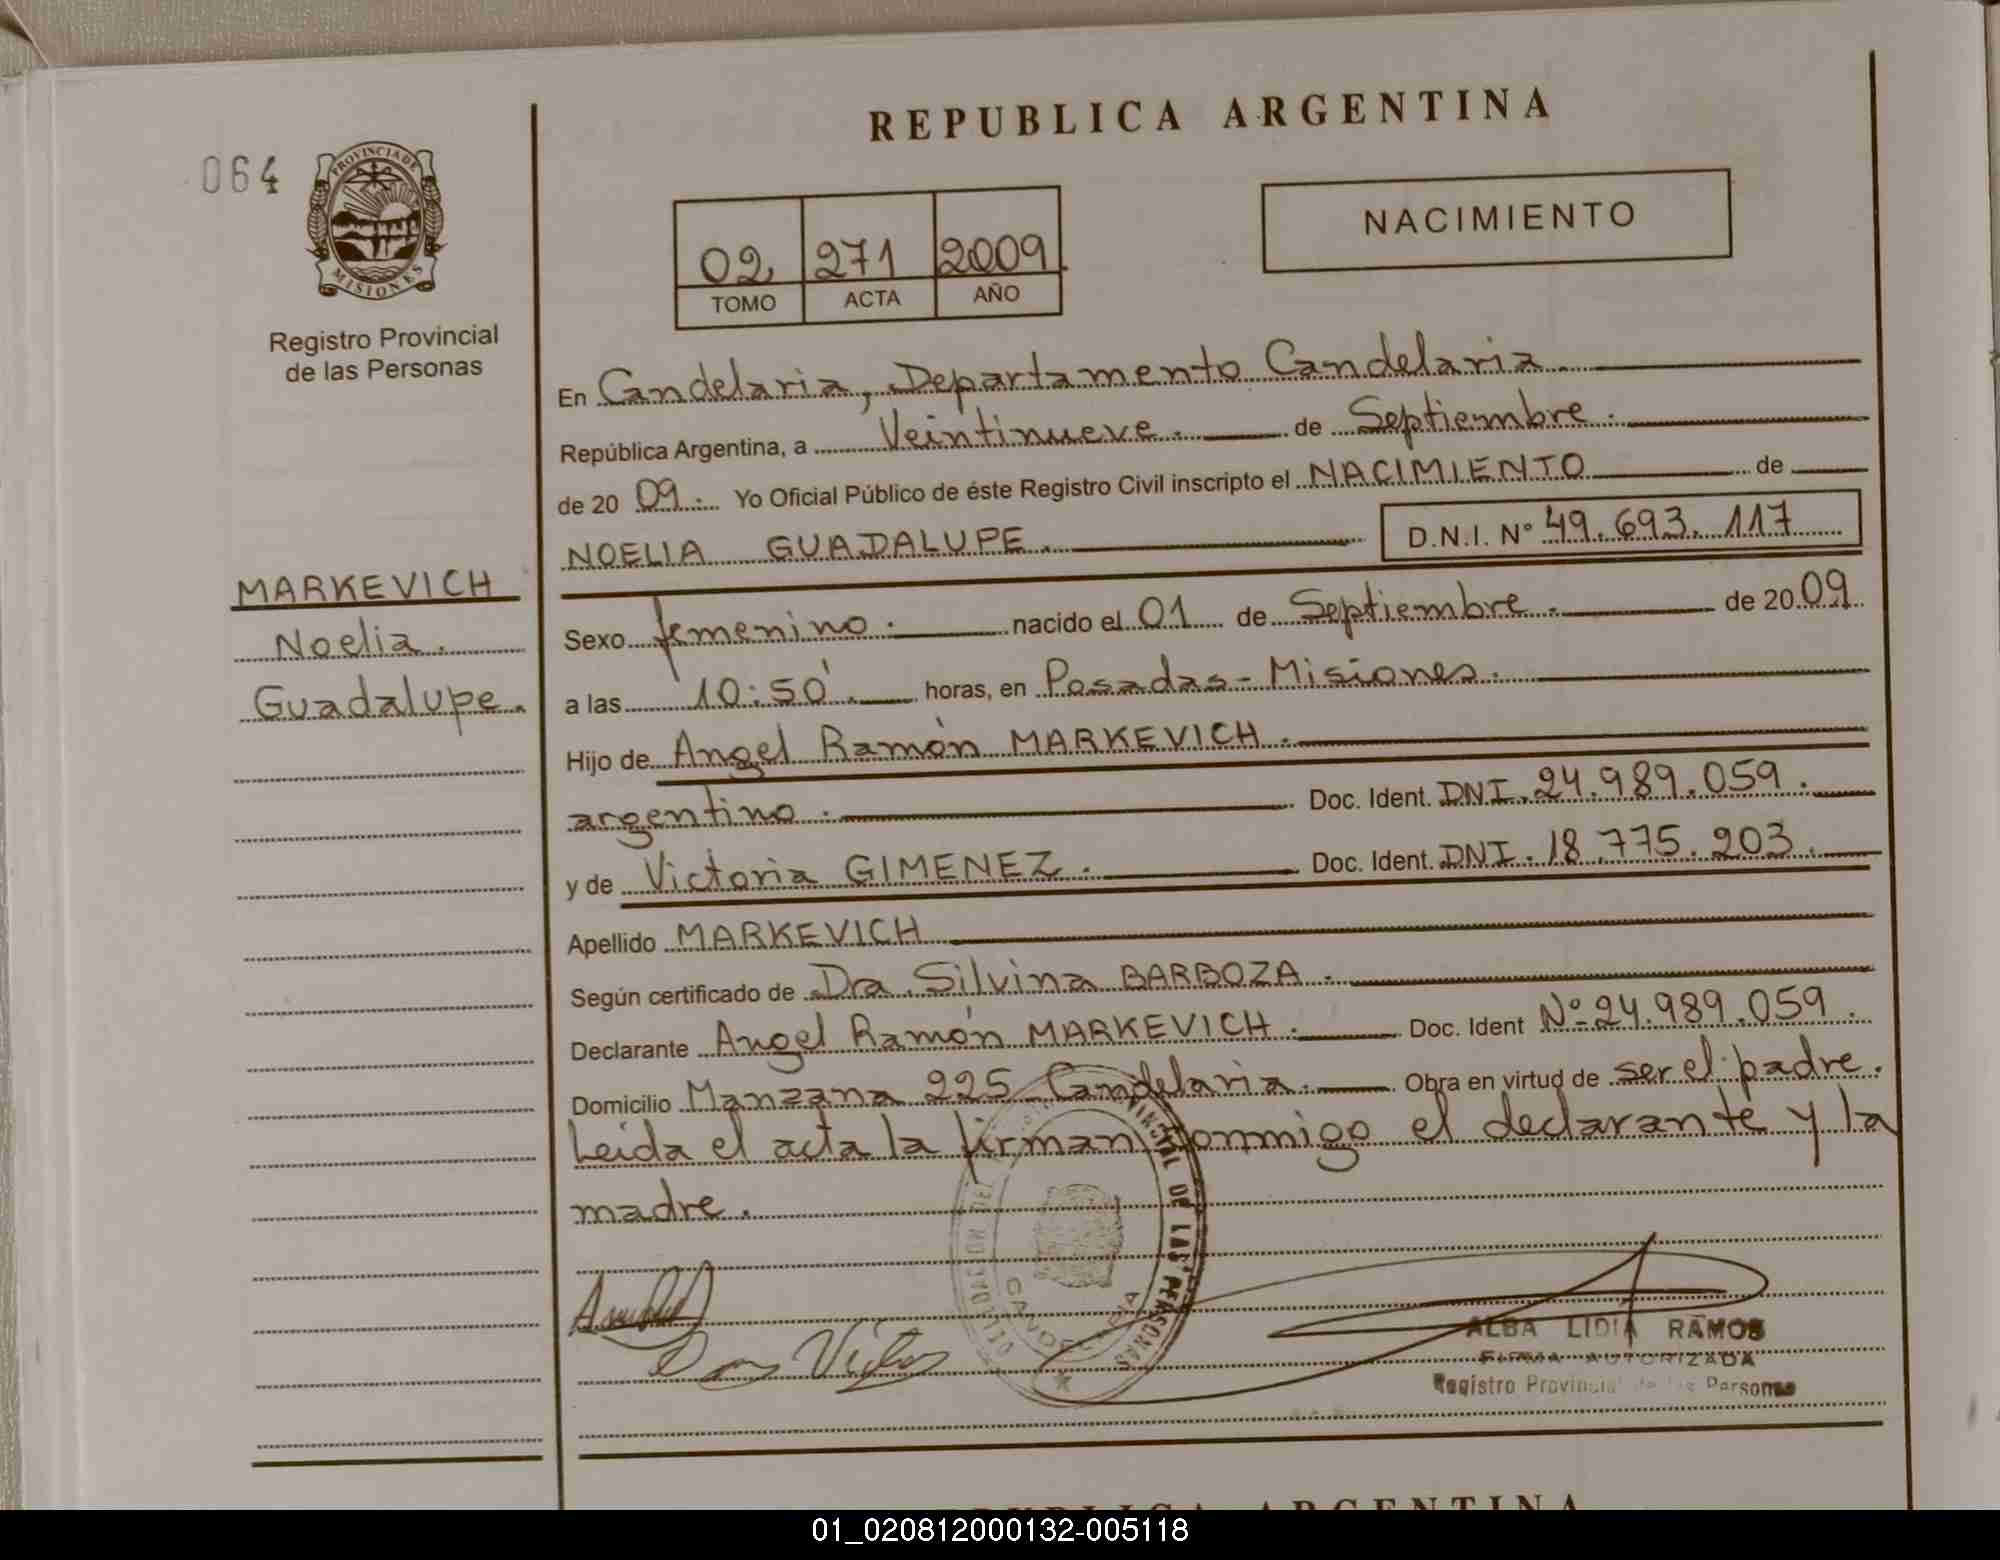 REPUBLICA ARGENTINA
064
PROVINCIA DE
MISIONES
Registro Provincial
de las Personas
02 271 2009
TOMO ACTA AÑO
NACIMIENTO
En Candelaria, Departamento Candelaria
República Argentina, a Veintinueve. de Septiembre.
de 20 09. Yo Oficial Público de éste Registro Civil inscripto el NACIMIENTO de
NOELIA GUADALUPE. D.N.I. Nº 49.693.117
MARKEVICH
Noelia.
Guadalupe.
Sexo femenino. nacido el 01 de Septiembre. de 20 09
a las 10:50'. horas, en Posadas-Misiones.
Hijo de Angel Ramón MARKEVICH.
argentino. Doc. Ident. DNI. 24.989.059.
y de Victoria GIMENEZ. Doc. Ident. DNI. 18.775.203.
Apellido MARKEVICH
Según certificado de Dra. Silvina BARBOZA.
Declarante Angel Ramón MARKEVICH. Doc. Ident Nº 24.989.059.
Domicilio Manzana 225 Candelaria. Obra en virtud de ser el padre.
Leida el acta la firman conmigo el declarante y la
madre.
DE LAS PERSONAS
ALBA LIDIA RAMOS
FIRMA AUTORIZADA
Registro Provincial de las Personas
REPUBLICA ARGENTINA
01_020812000132-005118